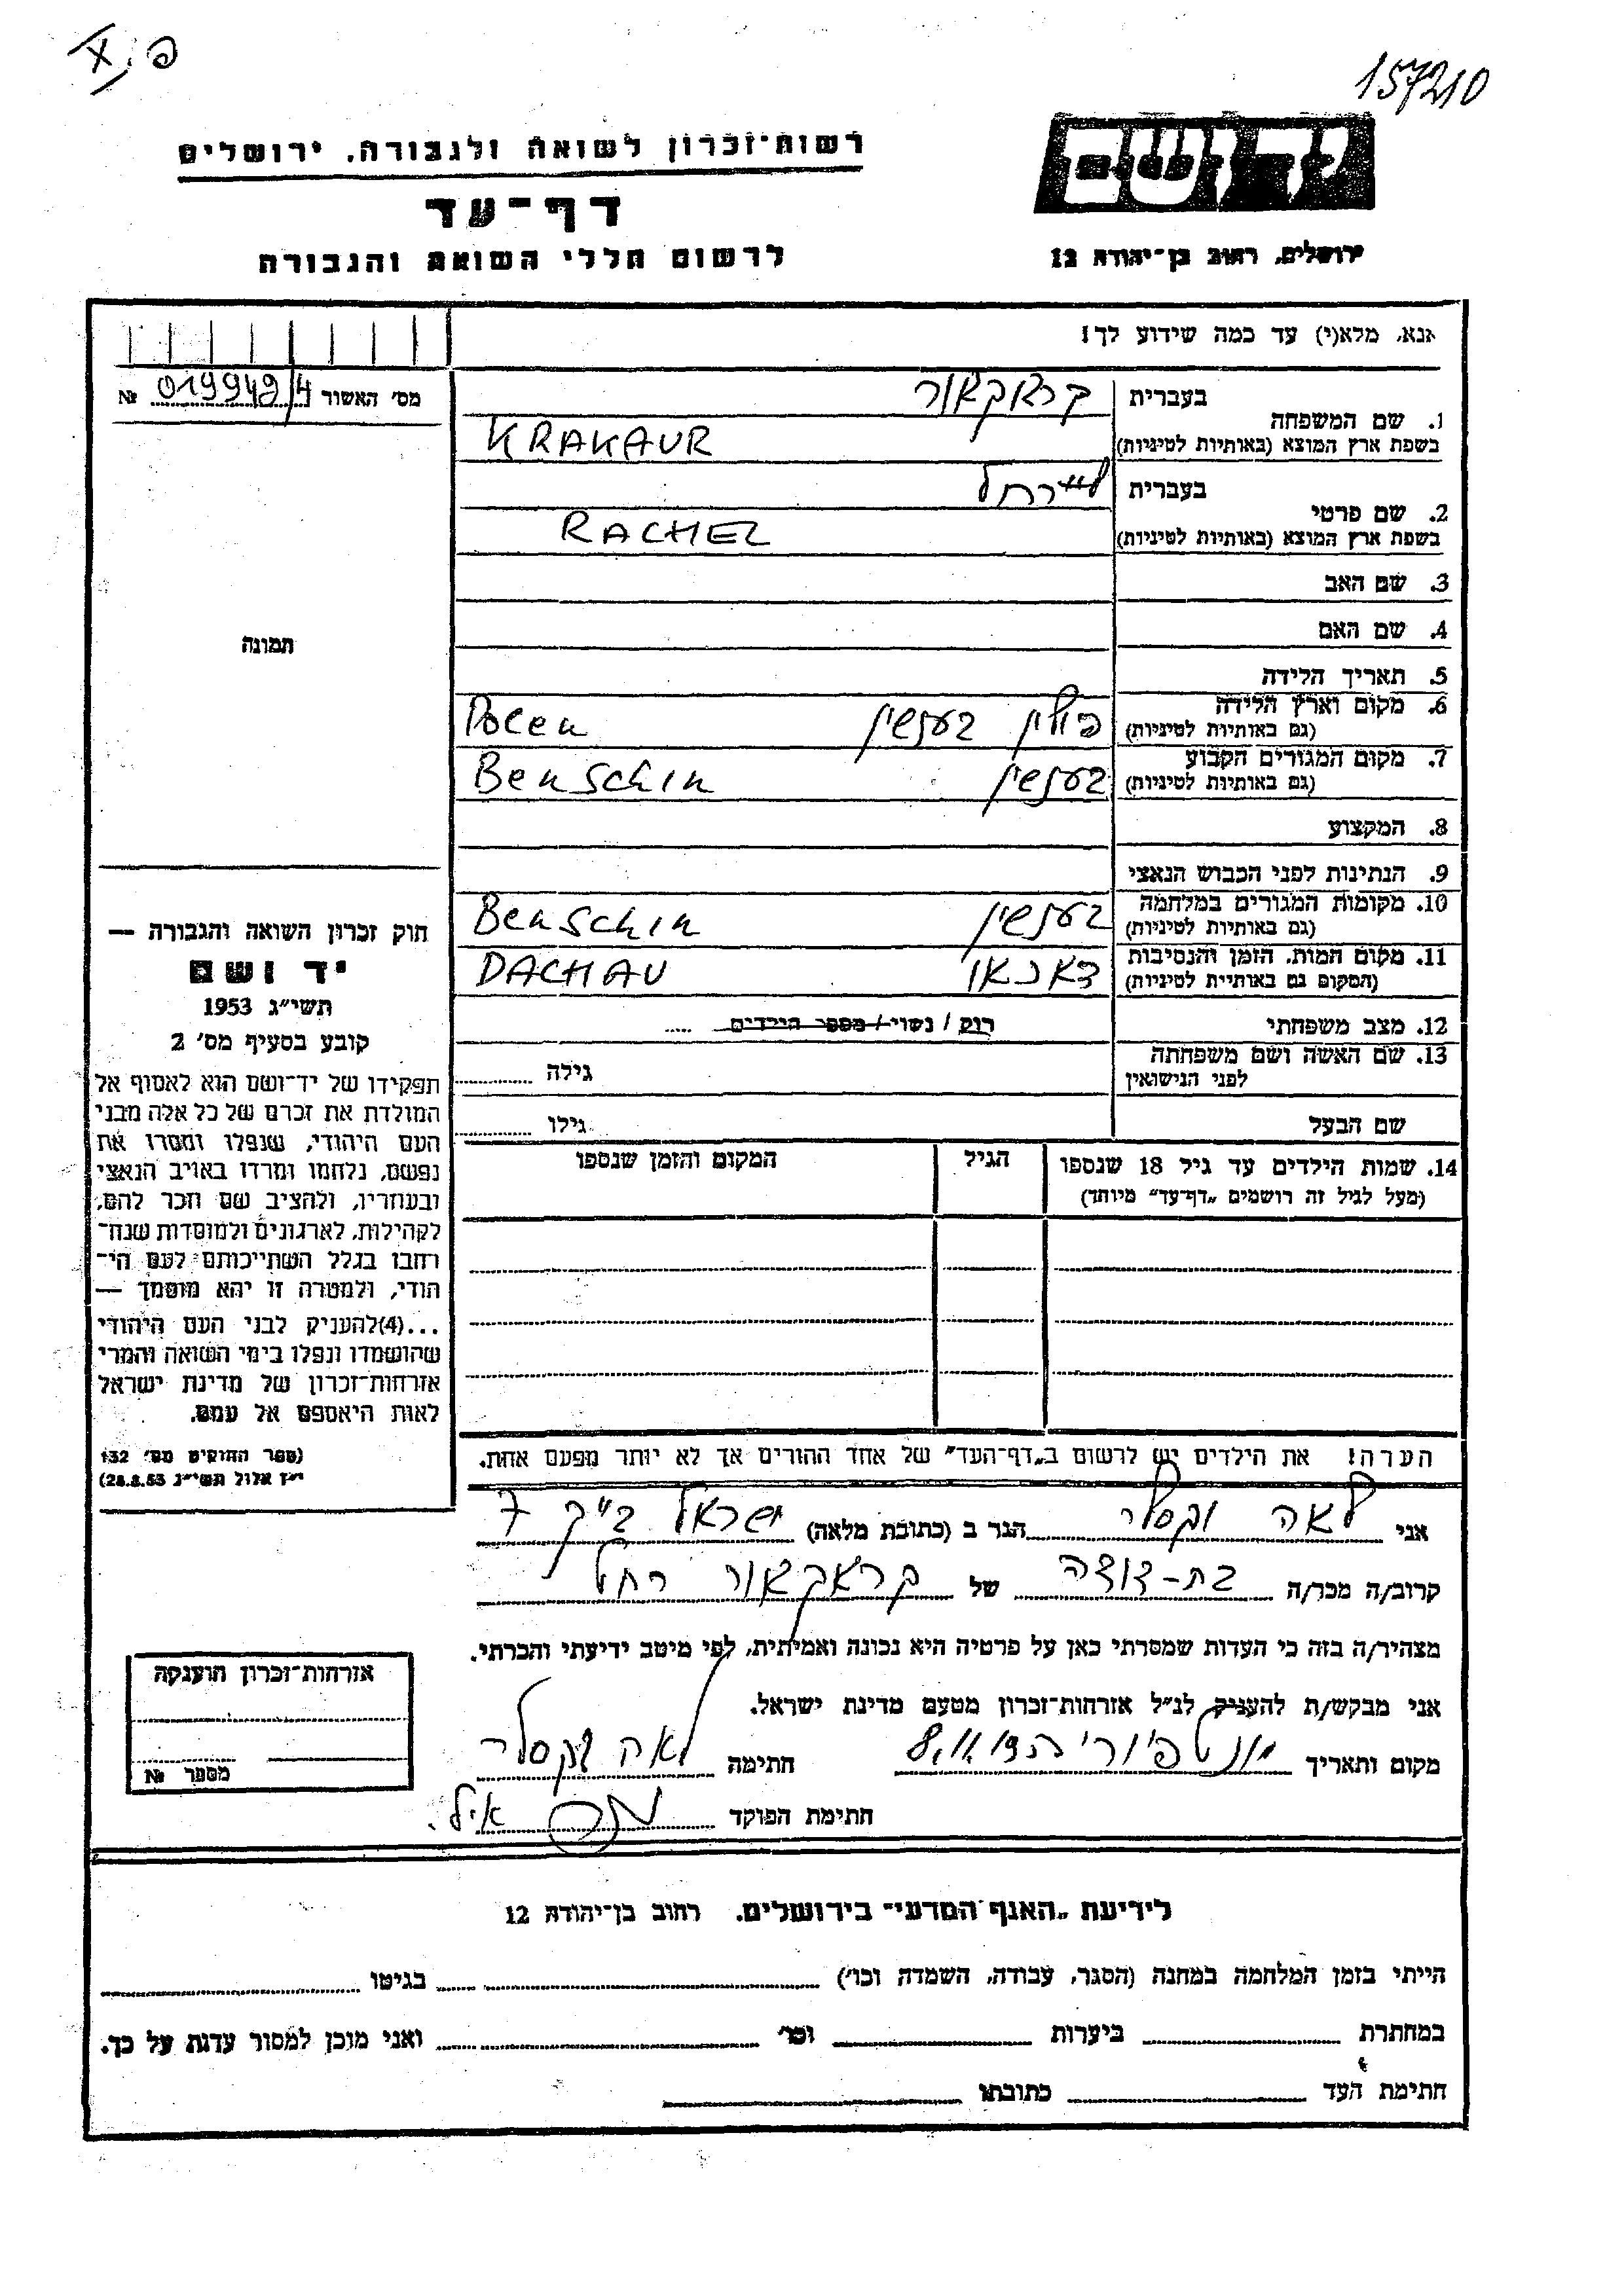 157210
רשות־זכרון לשואה ולגבורה, ירושלים
יד ושם
דף־עד
לרשום חללי השואה והגבורה
ירושלים, רחוב בן־יהודה 12
אנא, מלא(י) עד כמה שידוע לך!
מס׳ האשור 019949/4 №
בעברית קראקאור
1. שם המשפחה
בשפת ארץ המוצא (באותיות לטיניות) KRAKAUR
בעברית רחל
2. שם פרטי
בשפת ארץ המוצא (באותיות לטיניות) RACHEL
3. שם האב
4. שם האם
תמונה
5. תאריך הלידה
6. מקום וארץ הלידה
(גם באותיות לטיניות) פולין בענשין Polen
7. מקום המגורים הקבוע
(גם באותיות לטיניות) בענשין Benschin
8. המקצוע
9. הנתינות לפני הכבוש הנאצי
10. מקומות המגורים במלחמה
(גם באותיות לטיניות) בענשין Benschin
11. מקום המות, הזמן והנסיבות
(המקום גם באותיות לטיניות) דאכאו DACHAU
12. מצב משפחתי רוק / נשוי / מספר הילדים
13. שם האשה ושם משפחתה
לפני הנישואין גילה
שם הבעל גילו
14. שמות הילדים עד גיל 18 שנספו הגיל המקום והזמן שנספו
(מעל לגיל זה רושמים „דף־עד״ מיוחד)
הערה! את הילדים יש לרשום ב„דף־העד״ של אחד ההורים אך לא יותר מפעם אחת.
חוק זכרון השואה והגבורה —
יד ושם
תשי״ג 1953
קובע בסעיף מס׳ 2
תפקידו של יד־ושם הוא לאסוף אל
המולדת את זכרם של כל אלה מבני
העם היהודי, שנפלו ומסרו את
נפשם, נלחמו ומרדו באויב הנאצי
ובעוזריו, ולהציב שם וזכר להם,
לקהילות, לארגונים ולמוסדות שנח־
רחבו בגלל השתייכותם לעם הי־
הודי, ולמטרה זו יהא מוסמך —
...(4)להעניק לבני העם היהודי
שהושמדו ונפלו בימי השואה והמרי
אזרחות־זכרון של מדינת ישראל
לאות היאספם אל עמם.
(ספר החוקים מס׳ 132
י״ז אלול תשי״ג 28.8.53)
אני לאה וקסלר הגר ב (כתובת מלאה) ישראל ב״ק 7
קרוב/ה מכר/ה בת-דודה של קראקאור רחל
מצהיר/ה בזה כי העדות שמסרתי כאן על פרטיה היא נכונה ואמיתית, לפי מיטב ידיעתי והכרתי.
אני מבקש/ת להעניק לנ״ל אזרחות־זכרון מטעם מדינת ישראל.
מקום ותאריך חתימה לאה וקסלר
חתימת הפוקד
אזרחות־זכרון הוענקה
מספר №
לידיעת „האגף המדעי״ בירושלים, רחוב בן־יהודה 12
הייתי בזמן המלחמה במחנה (הסגר, עבודה, השמדה וכו׳) בגיטו
במחתרת ביערות וכו׳ ואני מוכן למסור עדות על כך.
חתימת העד כתובתו